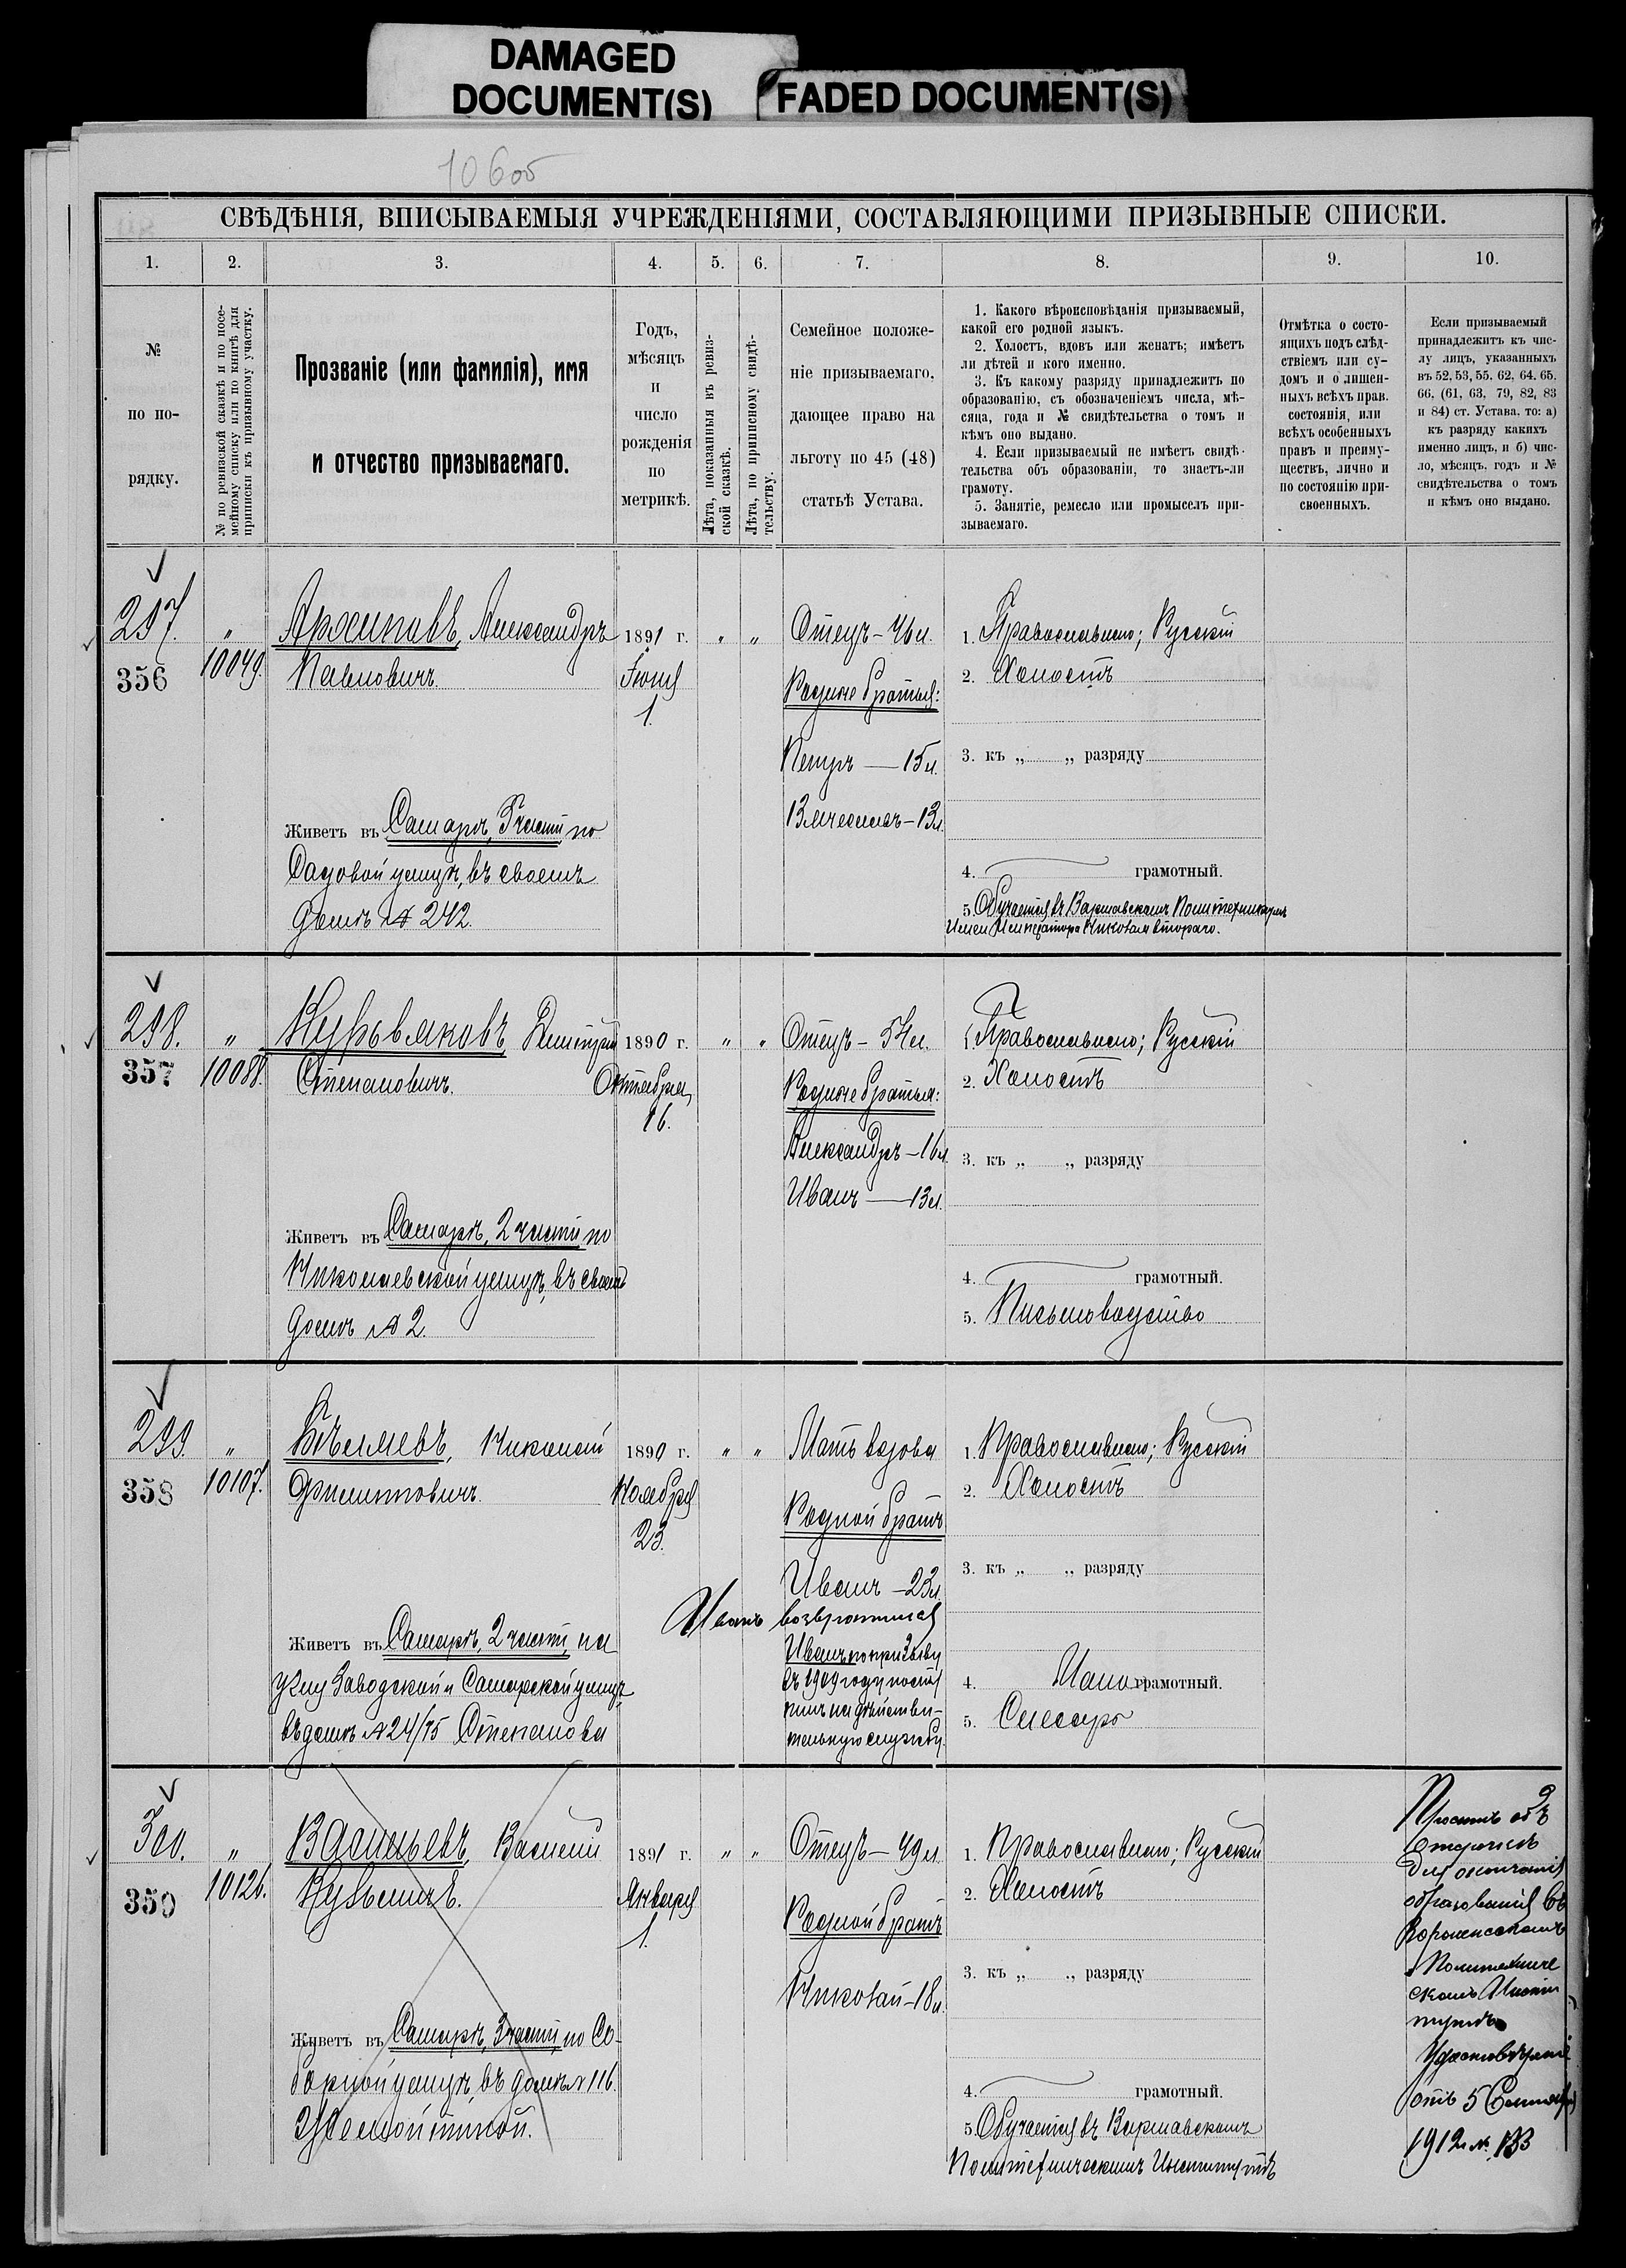 DAMAGED
DOCUMENT(S)
FADED DOCUMENT(S)
106об
СВѢДѢНІЯ, ВПИСЫВАЕМЫЯ УЧРЕЖДЕНІЯМИ, СОСТАВЛЯЮЩИМИ ПРИЗЫВНЫЕ СПИСКИ.
1. 2. 3. 4. 5. 6. 7. 8. 9. 10.
№
по по-
рядку.
№ по ревизской сказкѣ и по посе-
мейному списку или по книгѣ для
приписки къ призывному участку.
Прозваніе (или фамилія), имя
и отчество призываемаго.
Годъ,
мѣсяцъ
и
число
рожденія
по
метрикѣ.
Лѣта, показанныя въ ревиз-
ской сказкѣ.
Лѣта, по приписному свидѣ-
тельству.
Семейное положе-
ніе призываемаго,
дающее право на
льготу по 45 (48)
статьѣ Устава.
1. Какого вѣроисповѣданія призываемый,
какой его родной языкъ.
2. Холостъ, вдовъ или женатъ; имѣетъ
ли дѣтей и кого именно.
3. Къ какому разряду принадлежитъ по
образованію, съ обозначеніемъ числа, мѣ-
сяца, года и № свидѣтельства о томъ и
кѣмъ оно выдано.
4. Если призываемый не имѣетъ свидѣ-
тельства объ образованіи, то знаетъ-ли
грамоту.
5. Занятіе, ремесло или промыселъ при-
зываемаго.
Отмѣтка о состо-
ящихъ подъ слѣд-
ствіемъ или су-
домъ и о лишен-
ныхъ всѣхъ прав.
состоянія, или
всѣхъ особенныхъ
правъ и преиму-
ществъ, лично и
по состоянію при-
своенныхъ.
Если призываемый
принадлежитъ къ чис-
лу лицъ, указанныхъ
въ 52, 53, 55, 62, 64, 65,
66, (61, 63, 79, 82, 83
и 84) ст. Устава, то: а)
къ разряду какихъ
именно лицъ, и б) чис-
ло, мѣсяцъ, годъ и №
свидѣтельства о томъ
и кѣмъ оно выдано.
297.
356
"
10049.
Архиповъ, Александръ
Павловичъ.
Живетъ въ Самарѣ, 3 части, по
Садовой улицѣ, въ своемъ
домѣ № 242.
1891 г.
Іюня
1.
" "
Отецъ – 46 л.
Родные братья:
Петръ — 15 л.
Вячеславъ – 13 л.
1. Православнаго; Русскій
2. Холостъ
3. къ „ „ разряду
4. грамотный.
5. Обучается въ Варшавскомъ Политехникумѣ
Имени Императора Николая Второго.
298.
357
"
10088.
Дмитрій
Степановичъ.
Живетъ въ Самарѣ, 2 части по
Николаевской улицѣ, въ своемъ
домѣ № 2.
1890 г.
Октября
16.
" "
Отецъ – 54 л.
Родные братья:
Александръ – 16 л.
Иванъ — 13 л.
1. Православнаго; Русскій
2. Холостъ
3. къ „ „ разряду
4. грамотный.
5. Письмоводство
299.
358
"
10107.
Бѣляевъ, Николай
Филипповичъ.
Живетъ въ Самарѣ, 2 части, на
углу Заводской и Самарской улицъ
въ домѣ № 24/75 Степанова
1890 г.
Ноября
23.
" "
Мать вдова
Родной братъ
Иванъ – 23 л.
Иванъ возвратился
Иванъ по призыву
въ 1909 году посту-
пилъ на дѣйстви-
тельную службу.
1. Православнаго; Русскій
2. Холостъ
3. къ „ „ разряду
4. Мало грамотный.
5. Слесарь
300.
359
"
10126.
Васильевъ, Василій
Кузьмичъ.
Живетъ въ Самарѣ, 3 части, по Со-
борной улицѣ, въ домѣ № 116.
1891 г.
Января
1.
" "
Отецъ – 49 л.
Родной братъ
Николай – 18 л.
1. Православнаго; Русскій
2. Холостъ
3. къ „ „ разряду
4. грамотный.
5. Обучается въ Варшавскомъ
Политехническомъ Институтѣ
Проситъ объ
отсрочкѣ
для окончанія
образованія въ
Политехниче
скомъ Инсти
тутѣ
Удостовѣреніе
отъ 5 Сентября
1912 г. № 133